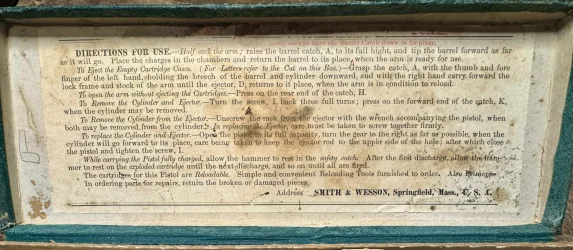 to have the Barrel Catch down to its place,
DIRECTIONS FOR USE.—Half cock the arm; raise the barrel catch, A, to its full hight, and tip the barrel forward as far
as it will go. Place the charges in the chambers and return the barrel to its place, when the arm is ready for use.
To Eject the Empty Cartridge Cases. (For Letters refer to the Cut on this Box.)—Grasp the catch, A, with the thumb and fore
finger of the left hand, holding the breech of the barrel and cylinder downward, and with the right hand carry forward the
lock frame and stock of the arm until the ejector, D, returns to its place, when the arm is in condition to reload.
To open the arm without ejecting the Cartridges.—Press on the rear end of the catch, H.
To Remove the Cylinder and Ejector.—Turn the screw, I, back three full turns; press on the forward end of the catch, K,
when the cylinder may be removed.
To Remove the Cylinder from the Ejector.—Unscrew the rack from the ejector with the wrench accompanying the pistol, when
both may be removed from the cylinder. In replacing the Ejector, care must be taken to screw together firmly.
To replace the Cylinder and Ejector.—Open the pistol to its full capacity, turn the gear to the right as far as possible, when the
cylinder will go forward to its place, care being taken to keep the ejector rod to the upper side of the hole; after which close
the pistol and tighten the screw, I.
While carrying the Pistol fully charged, allow the hammer to rest in the safety catch. After the first discharge, allow the ham-
mer to rest on the exploded cartridge until the next discharge, and so on until all are fired.
The cartridges for this Pistol are Reloadable. Simple and convenient Reloading Tools furnished to order. Also
In ordering parts for repairs, return the broken or damaged pieces
Address SMITH & WESSON, Springfield, Mass., U. S. A.